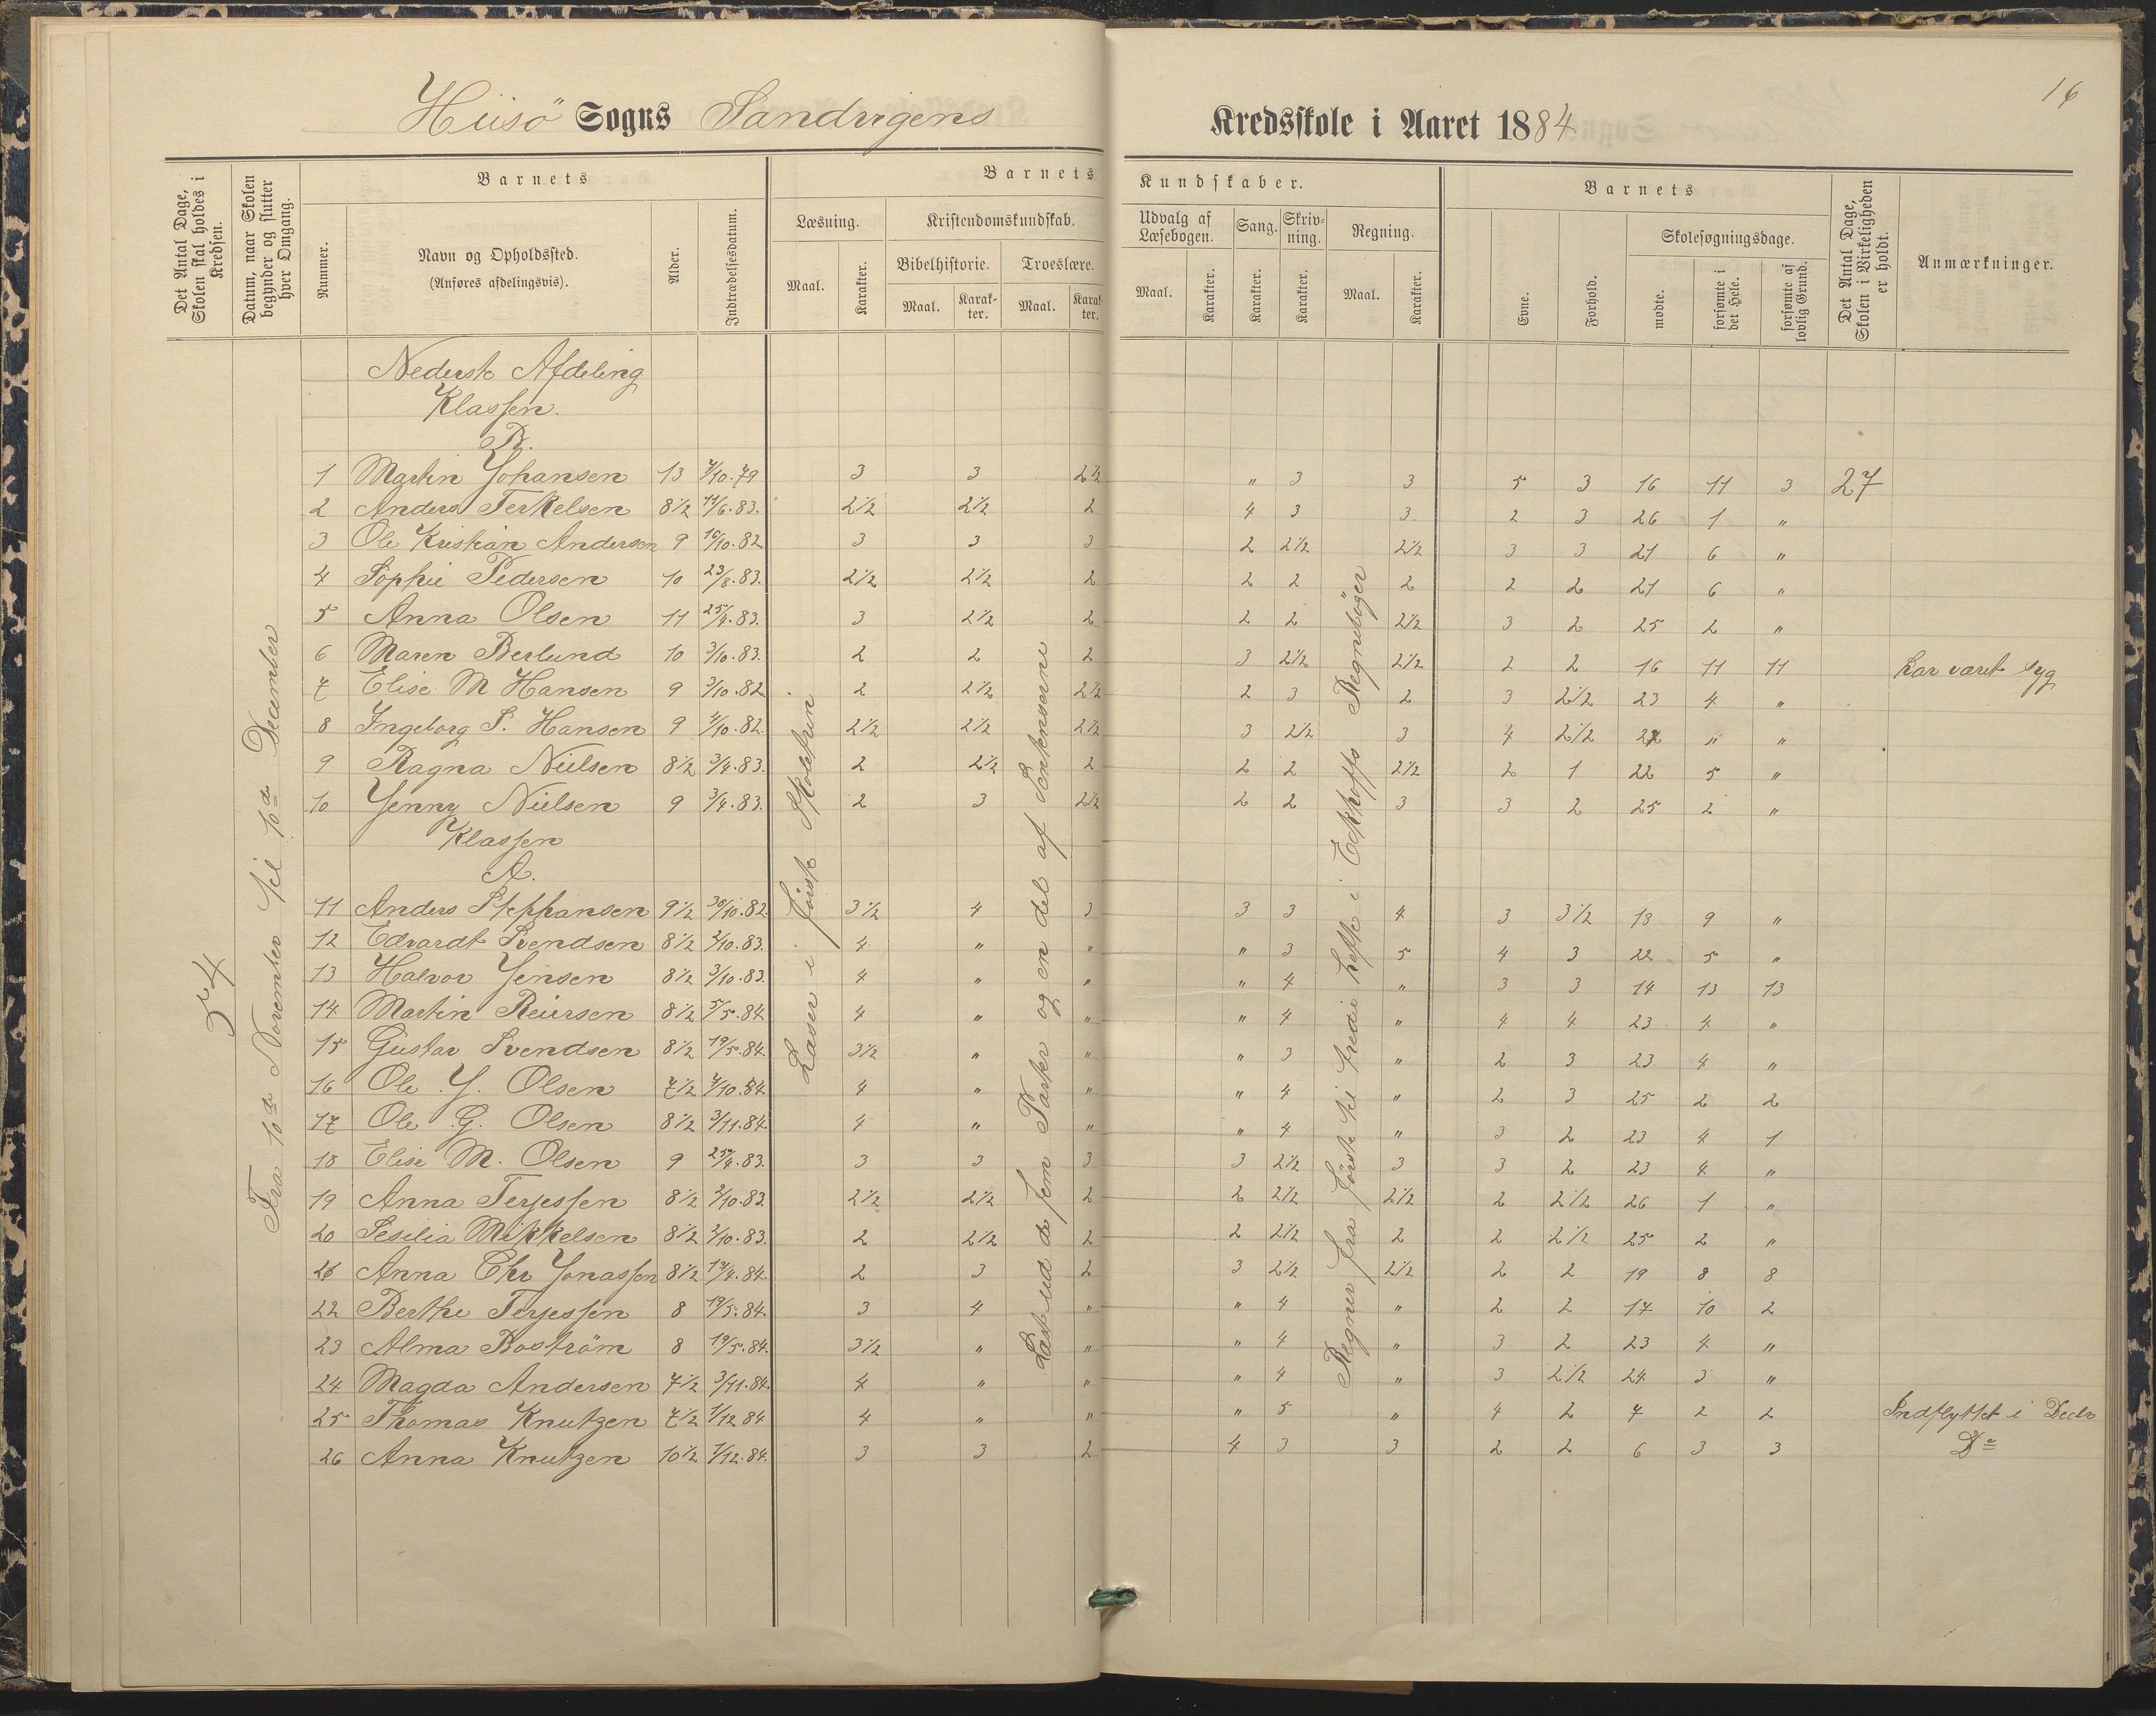 16
Hiisö Sogns Sandvigens Kredsskole i Aaret 1884
Det Antal Dage, Skolen skal holdes i Kredsen.
Datum, naar Skolen begynder og slutter hver Omgang.
Barnets
Nummer.
Navn og Opholdssted.
(Anføres afdelingsvis).
Alder.
Indtrædelsesdatum.
Barnets Kundskaber.
Læsning.
Maal.
Karakter.
Kristendomskundskab.
Bibelhistorie.
Maal.
Karakter.
Troeslære.
Maal.
Karakter.
Udvalg af Læsebogen.
Maal.
Karakter.
Sang.
Karakter.
Skrivning.
Karakter.
Regning.
Maal.
Karakter.
Barnets
Evne.
Forhold.
Skolesøgningsdage.
mødte.
forsømte i det Hele.
forsømte af lovlig Grund.
Det Antal Dage, Skolen i Virkeligheden er holdt.
Anmærkninger.
54
Fra 10de November til 10de December
Læser i første Skoletrin
Læst ud de fem Parter og en del af Sentenserne
Regner fra første til tredie hefte i Eckhoffs Regnebøger
Nederste Afdeling
Klassen.
B.
1 Martin Johansen 13 7/10.79 3 3 2½ " 3 3 5 3 16 11 3 27
2 Anders Terkelsen 8½ 11/6.83. 2½ 2½ 2 4 3 3 2 3 26 1 "
3 Ole Kristian Andersen 9 16/10.82. 3 3 3 2 2½ 2½ 3 3 21 6 "
4 Sophie Pedersen 10 23/8.83. 2½ 2½ 2 2 2 2 2 2 21 6 "
5 Anna Olsen 11 25/4.83. 3 2½ 2 2 2 2½ 3 2 25 2 "
6 Maren Berlund 10 3/10.83. 2 2 2 3 2½ 2½ 2 2 16 11 11 har været syg
7 Elise M Hansen 9 3/10.82 2 2½ 2½ 2 3 2 3 2½ 23 4 "
8 Ingeborg S. Hansen 9 4/10.82. 2½ 2½ 2½ 3 2½ 3 4 2½ 27 " "
9 Ragna Nielsen 8½ 3/4.83. 2 2½ 2 2 2 2½ 2 1 22 5 "
10 Jenny Nielsen 9 3/4.83. 2 3 2½ 2 2 3 3 2 25 2 "
Klassen
A.
11 Anders Stephansen 9½ 30/10.82. 3½ 4 3 3 3 4 3 3½ 18 9 "
12 Edvardt Svendsen 8½ 2/10.83. 4 " " " 3 5 4 3 22 5 "
13 Halvor Jensen 8½ 3/10.83 4 " " " 4 " 3 3 14 13 13
14 Martin Reiersen 8½ 5/5.84 4 " " " 4 " 4 4 23 4 "
15 Gustav Svendsen 8½ 19/5.84. 3½ " " " 3 " 2 3 23 4 "
16 Ole J. Olsen 7½ 7/10.84. 4 " " " 4 " 2 3 25 2 2
17 Ole G. Olsen 8½ 3/11.84. 4 " " " 4 " 3 2 23 4 1
18 Elise M. Olsen 9 25/4.83. 3 3 3 3 2½ 3 3 2 23 4 "
19 Anna Terjessen 8½ 2/10.83. 2½ 2½ 2 2 2½ 2½ 2 2½ 26 1 "
20 Sesilia Mikkelsen 8½ 2/10.83. 2 2½ 2 2 2½ 2 2 2½ 25 2 "
21 Anna Chr Jonassen 8½ 14/4.84. 2 3 2 3 2½ 2½ 2 2 19 8 8
22 Berthe Terjessen 8 19/5.84. 3 4 " " 4 " 2 2 17 10 2
23 Alma Boström 8 19/5.84. 3½ " " " 4 " 3 2 23 4 "
24 Magda Andersen 7½ 3/11.84. 4 " " " 4 " 3 2½ 24 3 "
25 Thomas Knutzen 7½ 1/12 84 4 " " " 5 " 4 2 7 2 2 Indflyttet i Decbr
26 Anna Knutzen 10½ 1/12.84. 3 3 2 4 3 3 2 2 6 3 3 Do